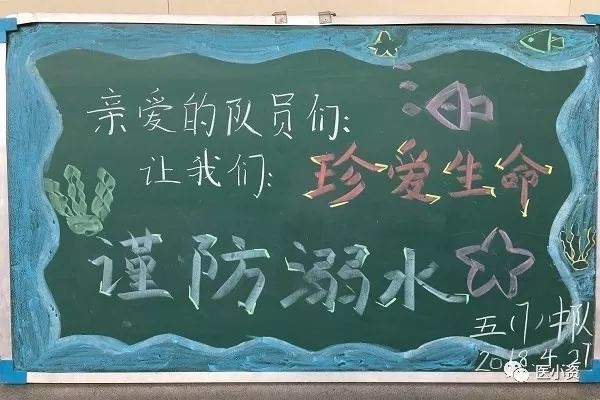 亲爱的队员们:
让我们:珍爱生命
谨防溺水
五(7)中队
2018.4.27
医小资